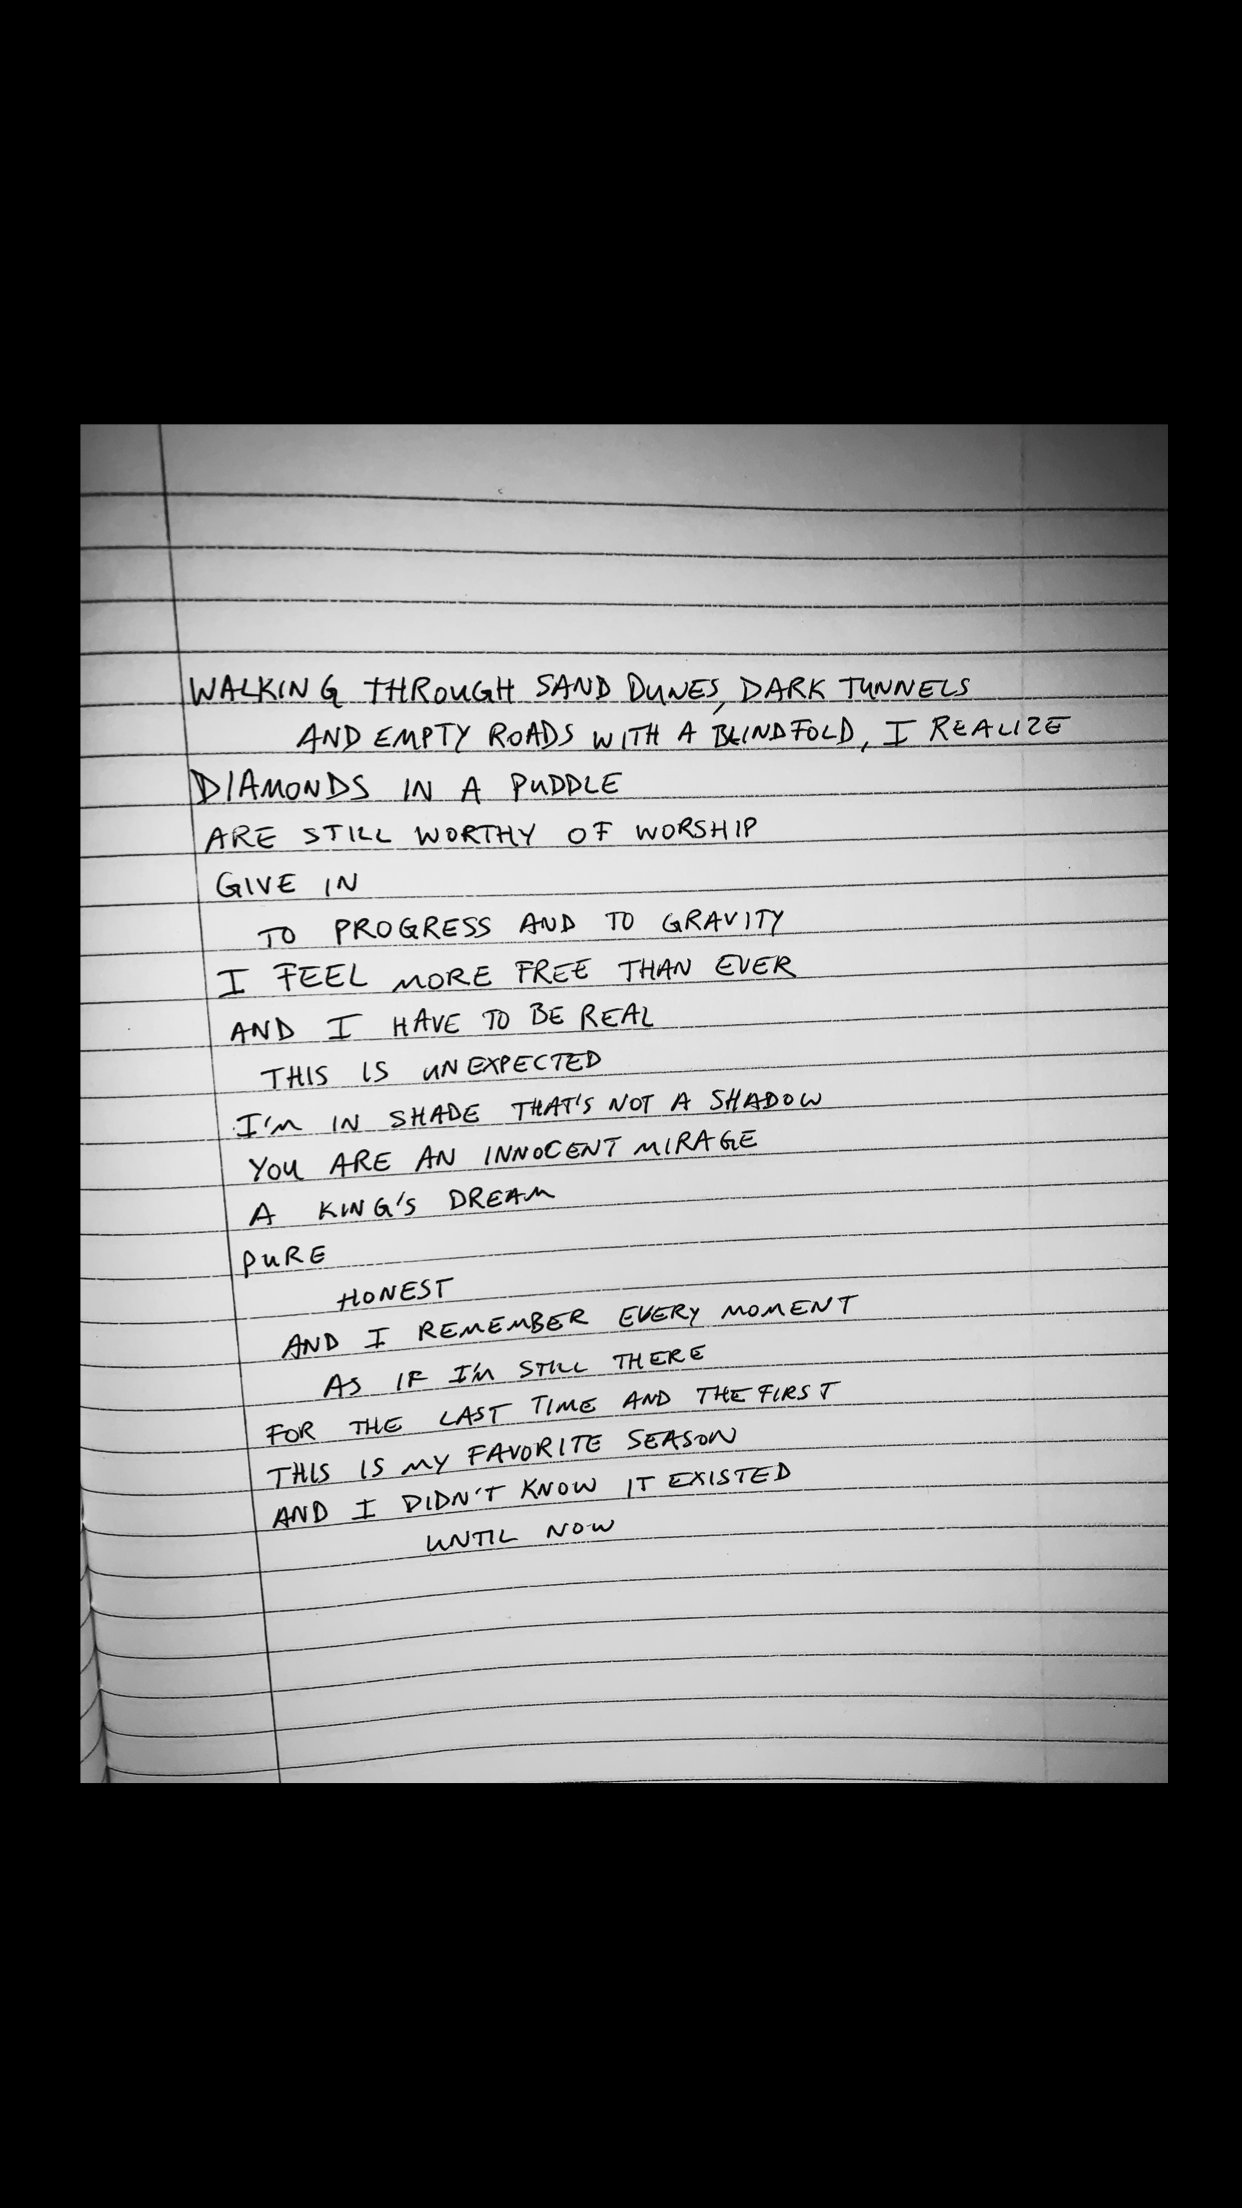 WALKING THROUGH SAND DUNES, DARK TUNNELS
AND EMPTY ROADS WITH A BLINDFOLD, I REALIZE
DIAMONDS IN A PUDDLE
ARE STILL WORTHY OF WORSHIP
GIVE IN
TO PROGRESS AND TO GRAVITY
I FEEL MORE FREE THAN EVER
AND I HAVE TO BE REAL
THIS IS UNEXPECTED
I'M IN SHADE THAT'S NOT A SHADOW
YOU ARE AN INNOCENT MIRAGE
A KING'S DREAM
PURE
HONEST
AND I REMEMBER EVERY MOMENT
AS IF I'M STILL THERE
FOR THE LAST TIME AND THE FIRST
THIS IS MY FAVORITE SEASON
AND I DIDN'T KNOW IT EXISTED
UNTIL NOW